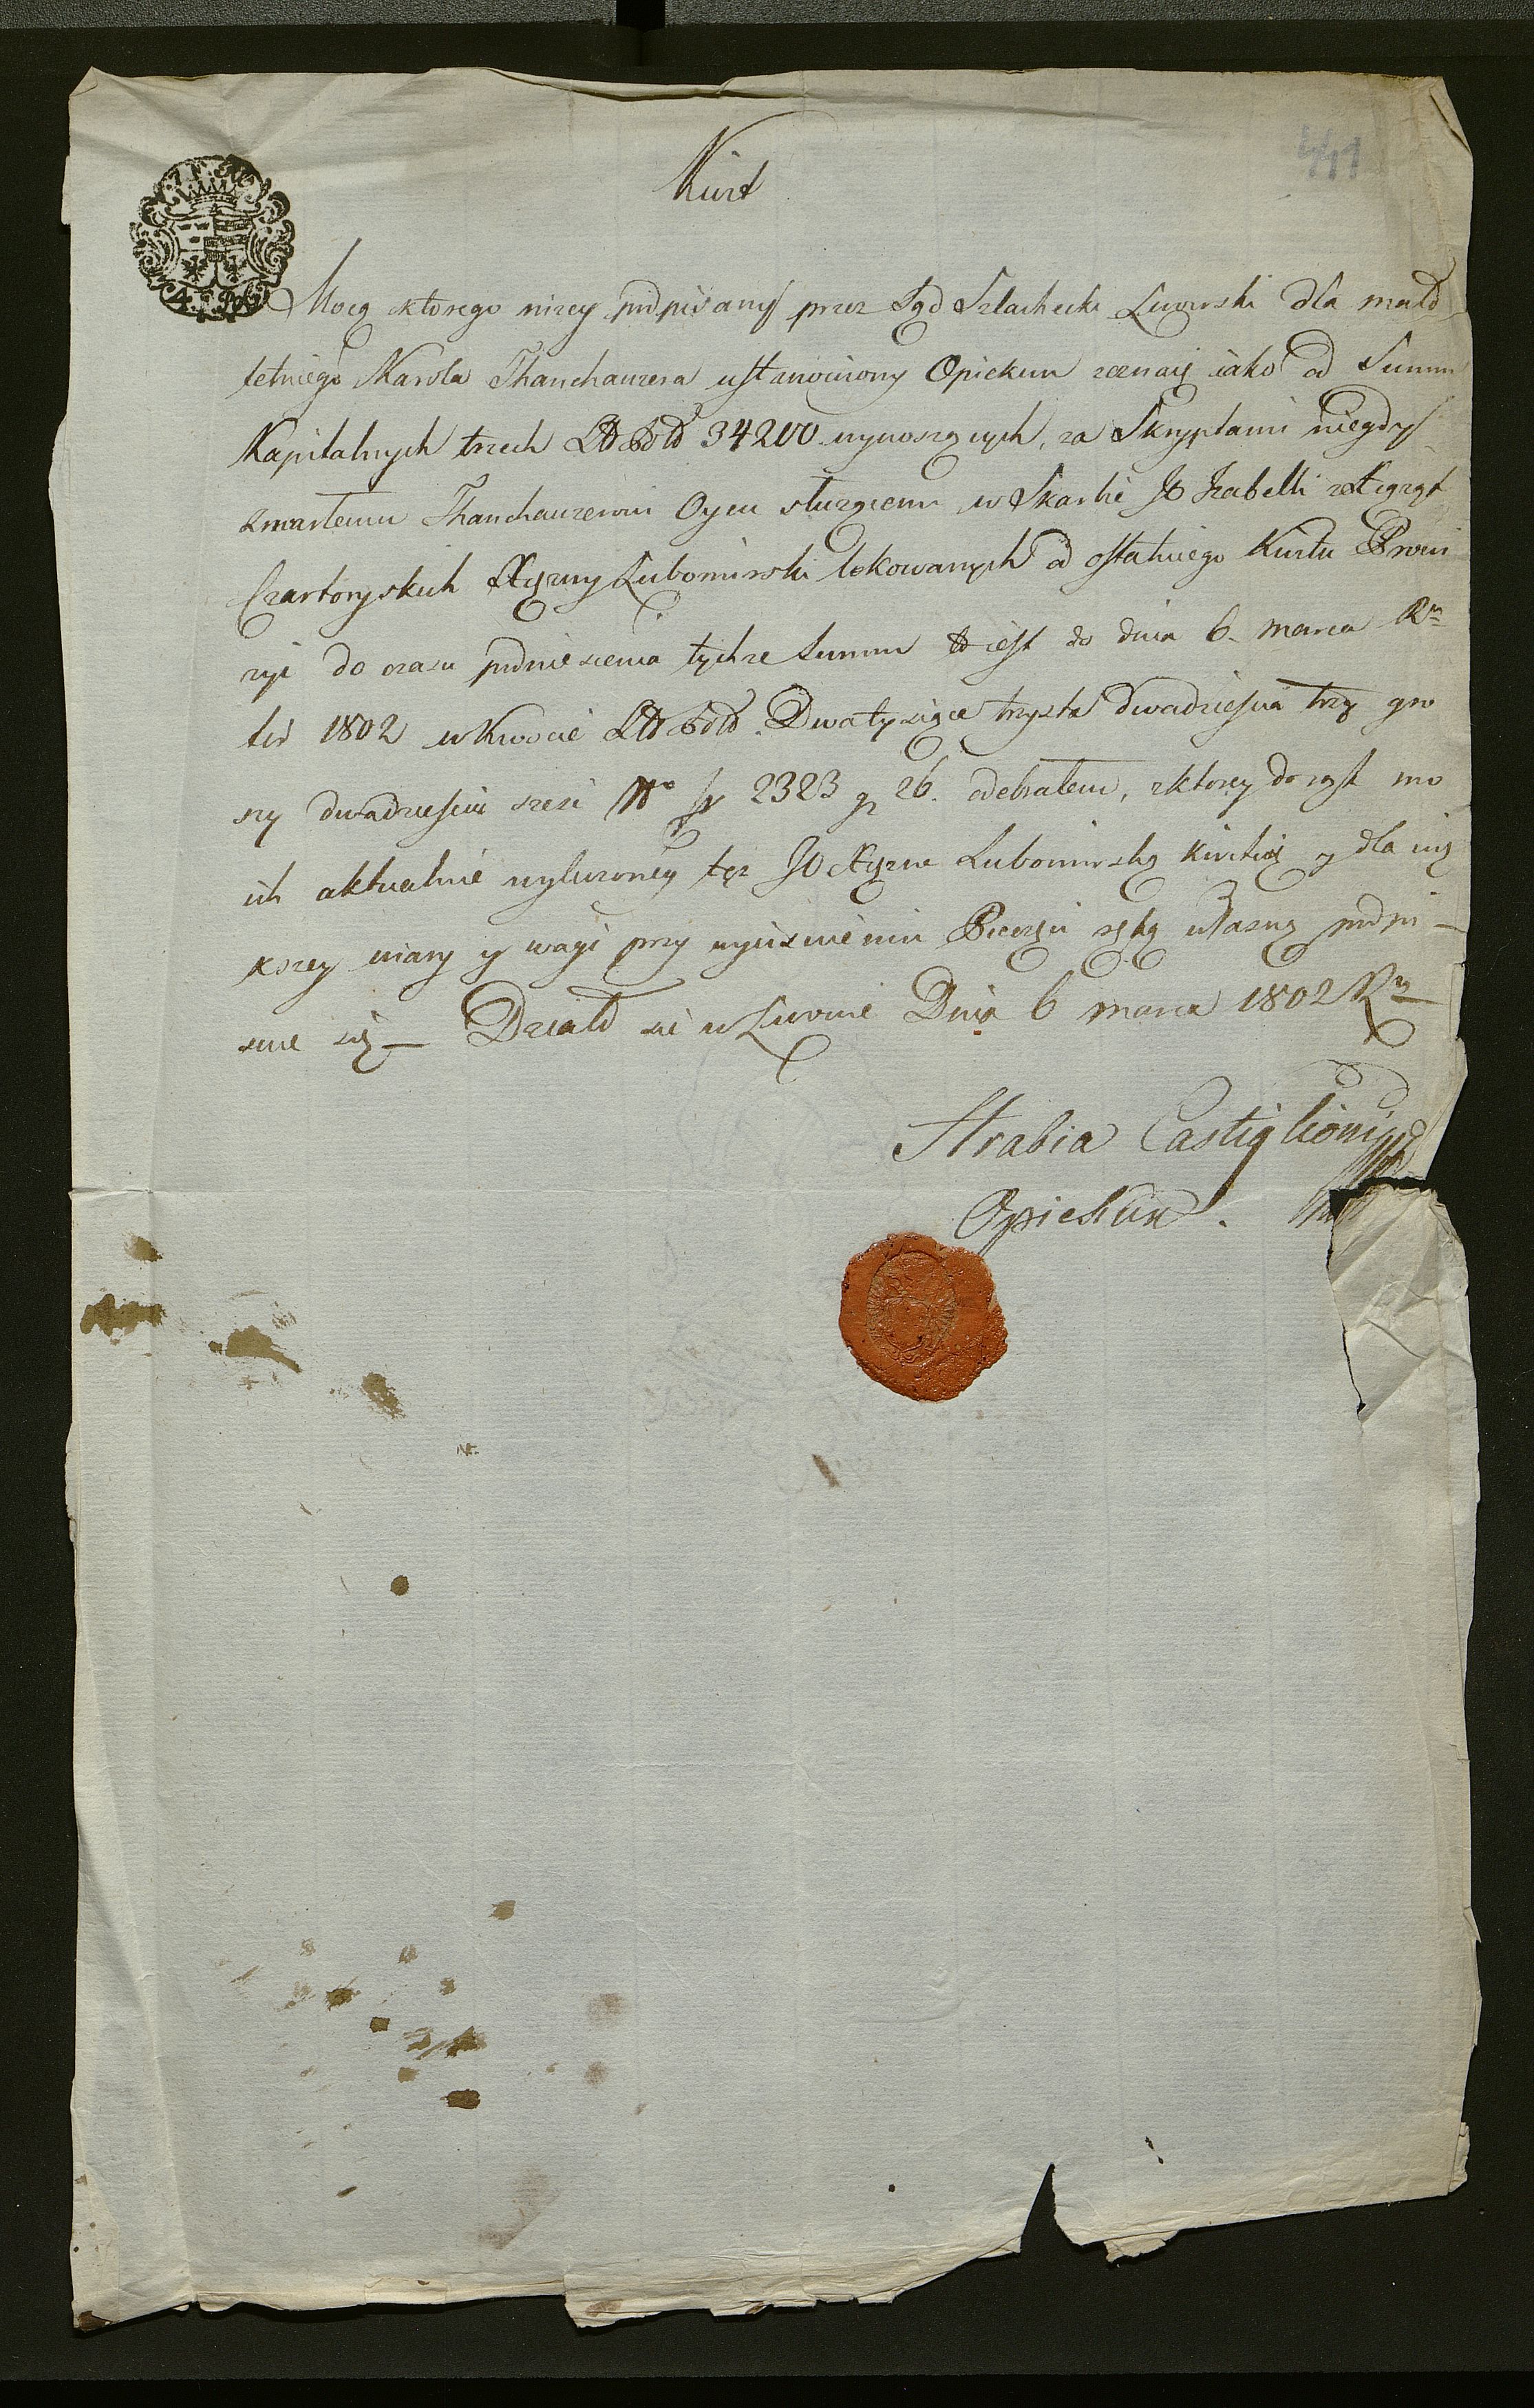 441
Kwit
4. f: Pol:
Mocą ktorego nizey podpisany przez Sąd Szlachecki Lwowski dla mało
letniego Karola Thanchauzera ustanowiony Opiekun zeznaię iako od Summ
Kapitalnych trzech 34200 wynoszących, za Skryptami niegdyś
zmarłemu Thanchauzerowi Oycu słuzącemi w Skarbie JO Izabelli z Xiąząt
Czartoryskich Xięzny Lubomirski lokowanych od ostatniego Kwitu Prowi
zyi do czasu podniesienia tychze Summ to iest do dnia 6. marca Rю
tis 1802 w Kwocie Dwa tysiące trzysta dwadzieścia trzy gro
szy dwadzieścia sześć No 2323 gr 26. odebrałem, z ktorey do rąk mo
ich aktualnie wyliczoney tęz JO Xięzne Lubomirską kwituię y dla więk
kszey wiary y wagi przy wycisnieniu Pieczęci ręką własną podpi-
suie się - Działo się w Lwowie Dnia 6 marca 1802 Rю
Hrabia Castiglioni
Opiekun.